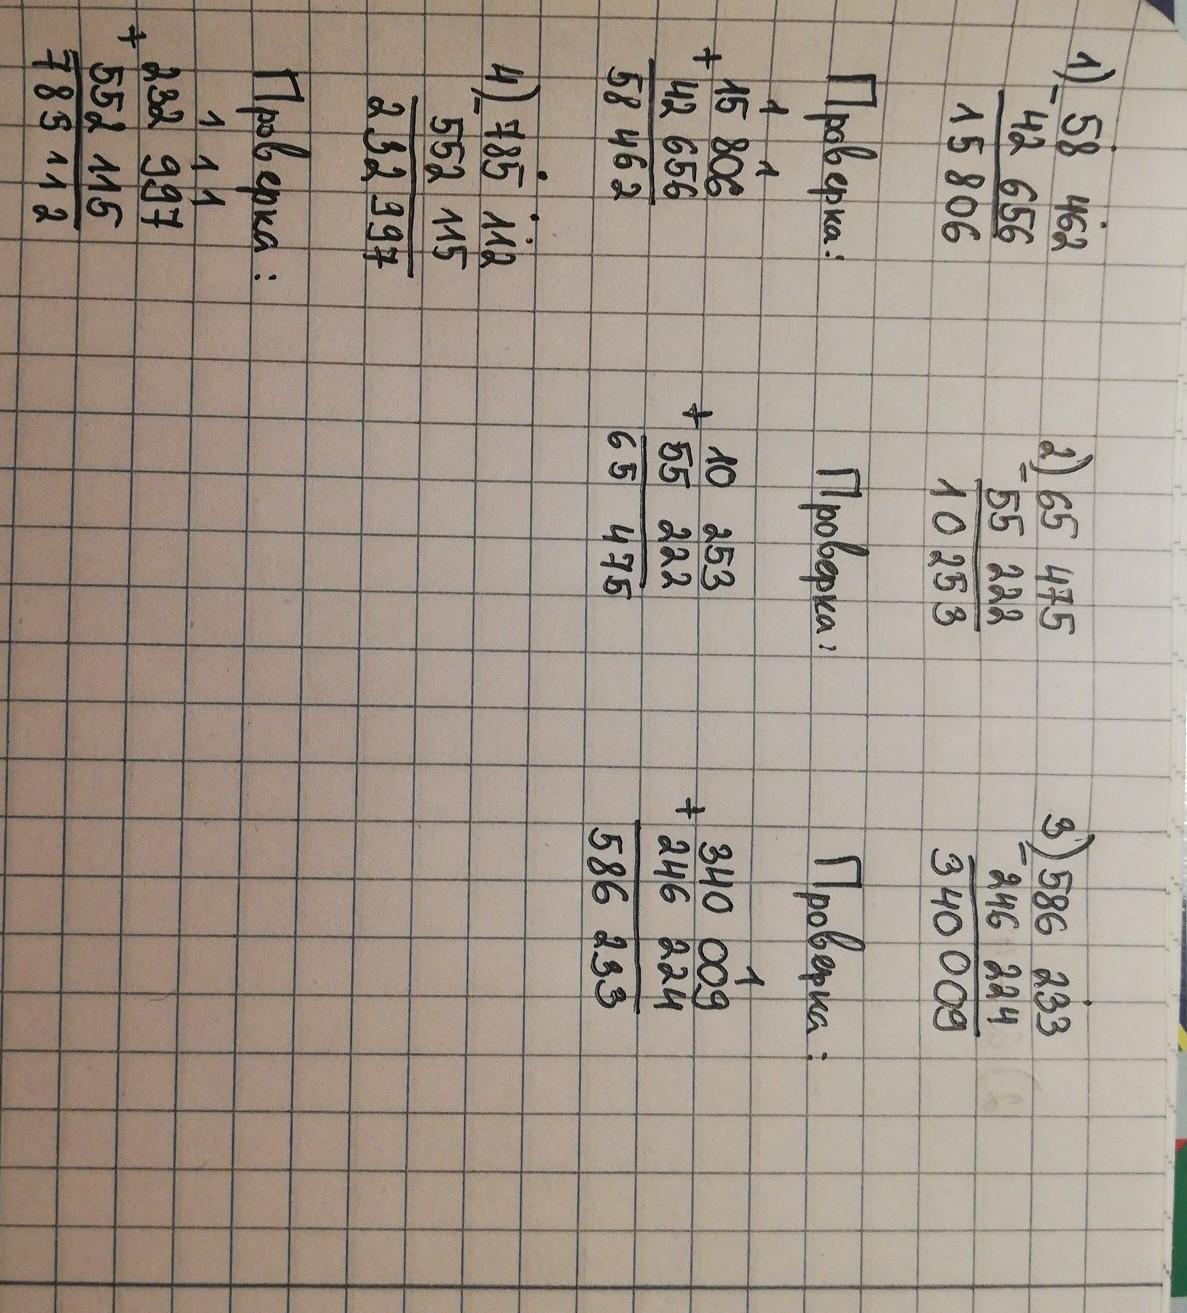 1) 58 462
- 42 656
15 806
Проверка:
1 1
+ 15 806
42 656
58 462
2) 65 475
- 55 222
10 253
Проверка:
+ 10 253
55 222
65 475
3) 586 233
- 246 224
340 009
Проверка:
1
+ 340 009
246 224
586 233
4) 785 112
- 552 115
232 997
Проверка:
1 1 1
+ 232 997
552 115
785 112